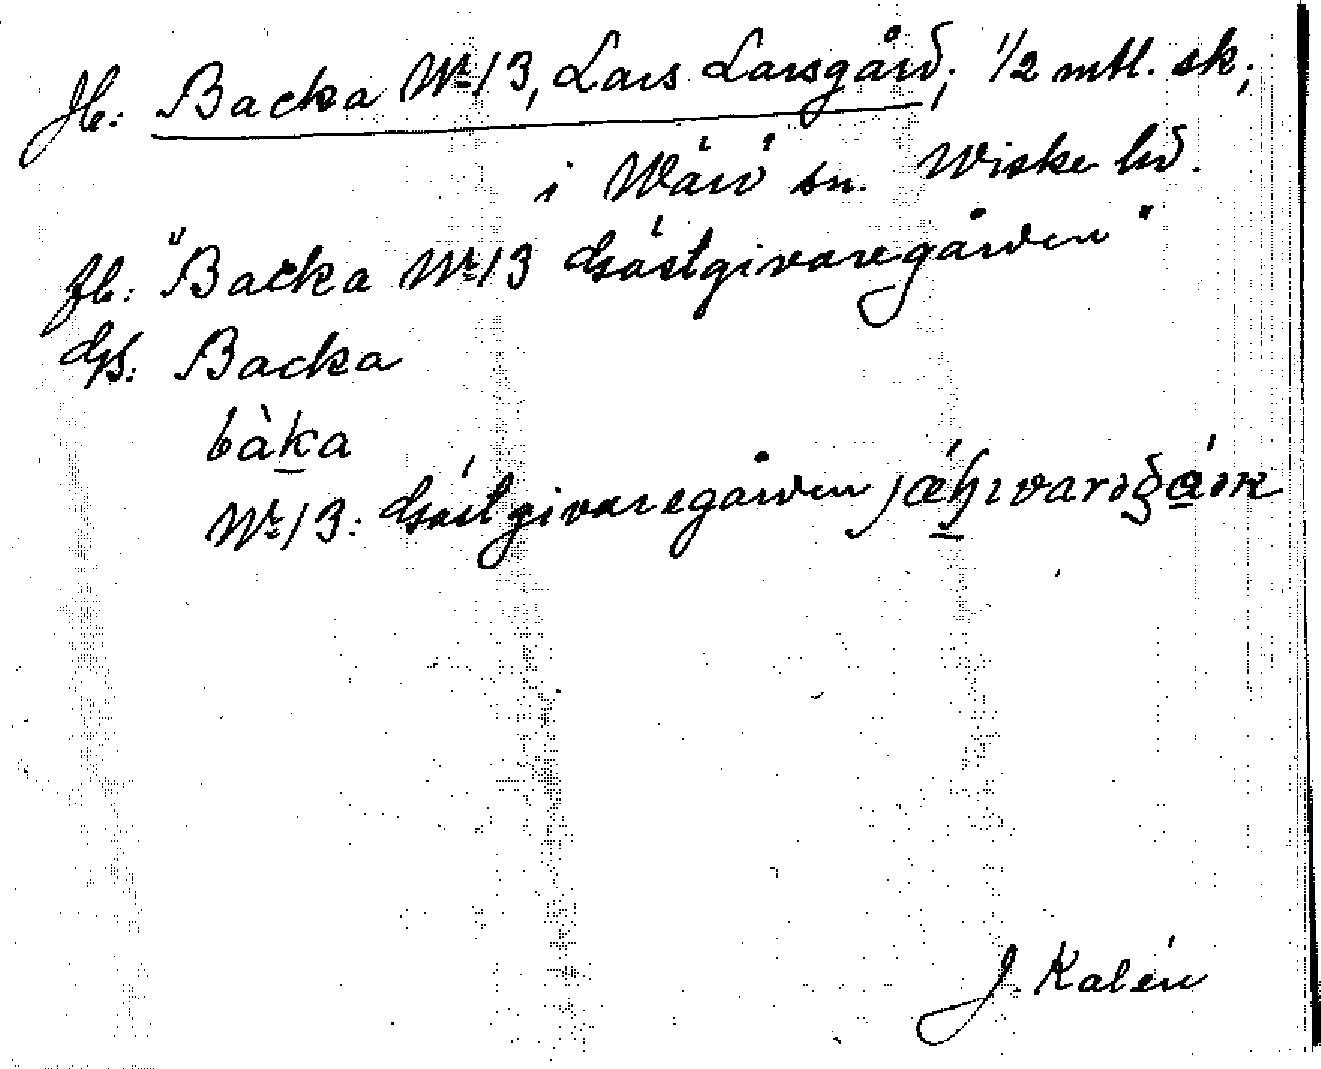 Jb: Backa Nr 13, Lars Larsgård; 1/2 mtl. sk;
i Wärö sn. Wiske hd.
Jb: "Backa Nr 13 Gästgivaregården"
GS: Backa
bàka
Nr 13: Gästgivaregården
J. Kalén